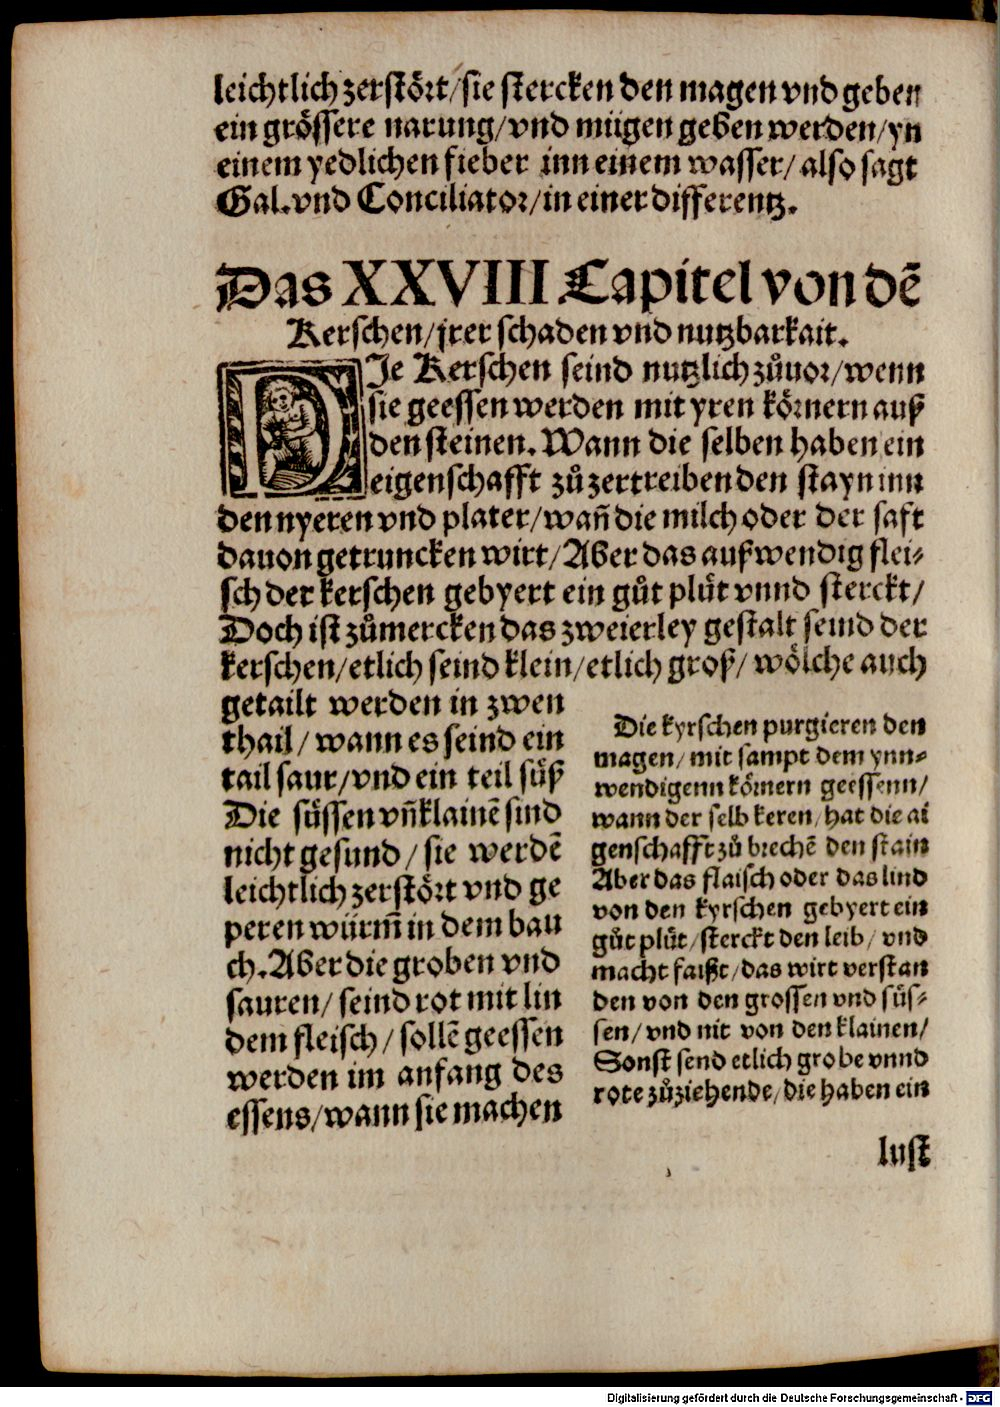 leichtlich zerstört/sie stercken den magen vnd geben
ein grössere narung/vnd mügen geben werden/yn
einem yedlichen fieber inn einem wasser/also sagt
Gal.vnd Conciliator/in einer differentz.
Das XXVIII Capitel von dē
Kerschen/jrer schaden vnd nutzbarkait.
DIe Kerschen seind nutzlich zůuor/wenn
sie geessen werden mit yren körnern auß
den steinen. Wann die selben haben ein
eigenschafft zů zertreiben den stayn inn
den nyeren vnd plater/wañ die milch oder der saft
dauon getruncken wirt/Aber das außwendig flei⸗
sch der kerschen gebyert ein gůt plůt vnnd sterckt/
Doch ist zůmercken das zweierley gestalt seind der
kerschen/etlich seind klein/etlich groß/wölche auch
getailt werden in zwen
thail/wann es seind ein
tail saur/vnd ein teil süß
Die süssen vñ klainē sind
nicht gesund/sie werdē
leichtlich zerstört vnd ge
peren würm̄ in dem bau
ch. Aber die groben vnd
sauren/seind rot mit lin
dem fleisch/sollē geessen
werden im anfang des
essens/wann sie machen
Die kyrschen purgieren den
magen/mit sampt dem ynn⸗
wendigenn körnern geessenn/
wann der selb keren/hat die ai
genschafft zů brechē den stain
Aber das flaisch oder das lind
von den kyrschen gebyert ein
gůt plůt/sterckt den leib/vnd
macht faißt/das wirt verstan
den von den grossen vnd süs⸗
sen/vnd nit von den klainen/
Sonst send etlich grobe vnnd
rote zůziehende/die haben ein
lust
Digitalisierung gefördert durch die Deutsche Forschungsgemeinschaft - DFG